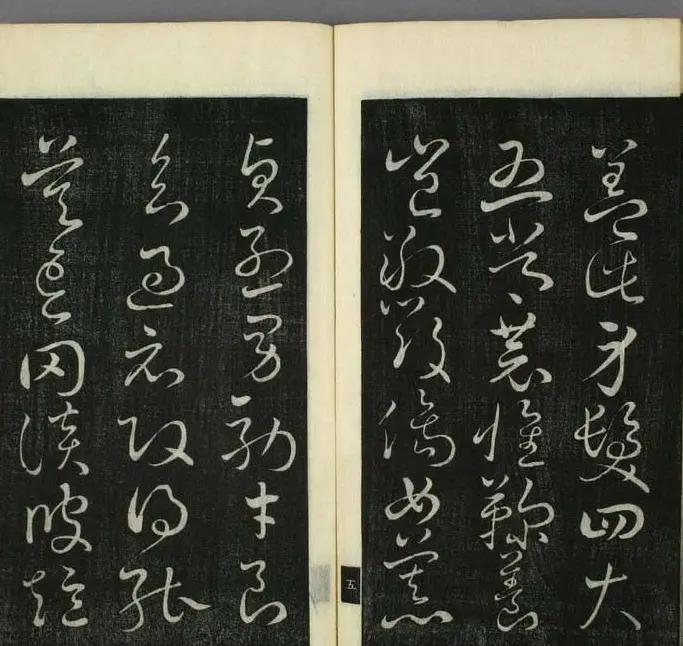 蓋此身髮四大
五常恭惟鞠養
豈敢毀傷女慕
五
貞烈男效才良
知過必改得能
莫忘罔談彼短